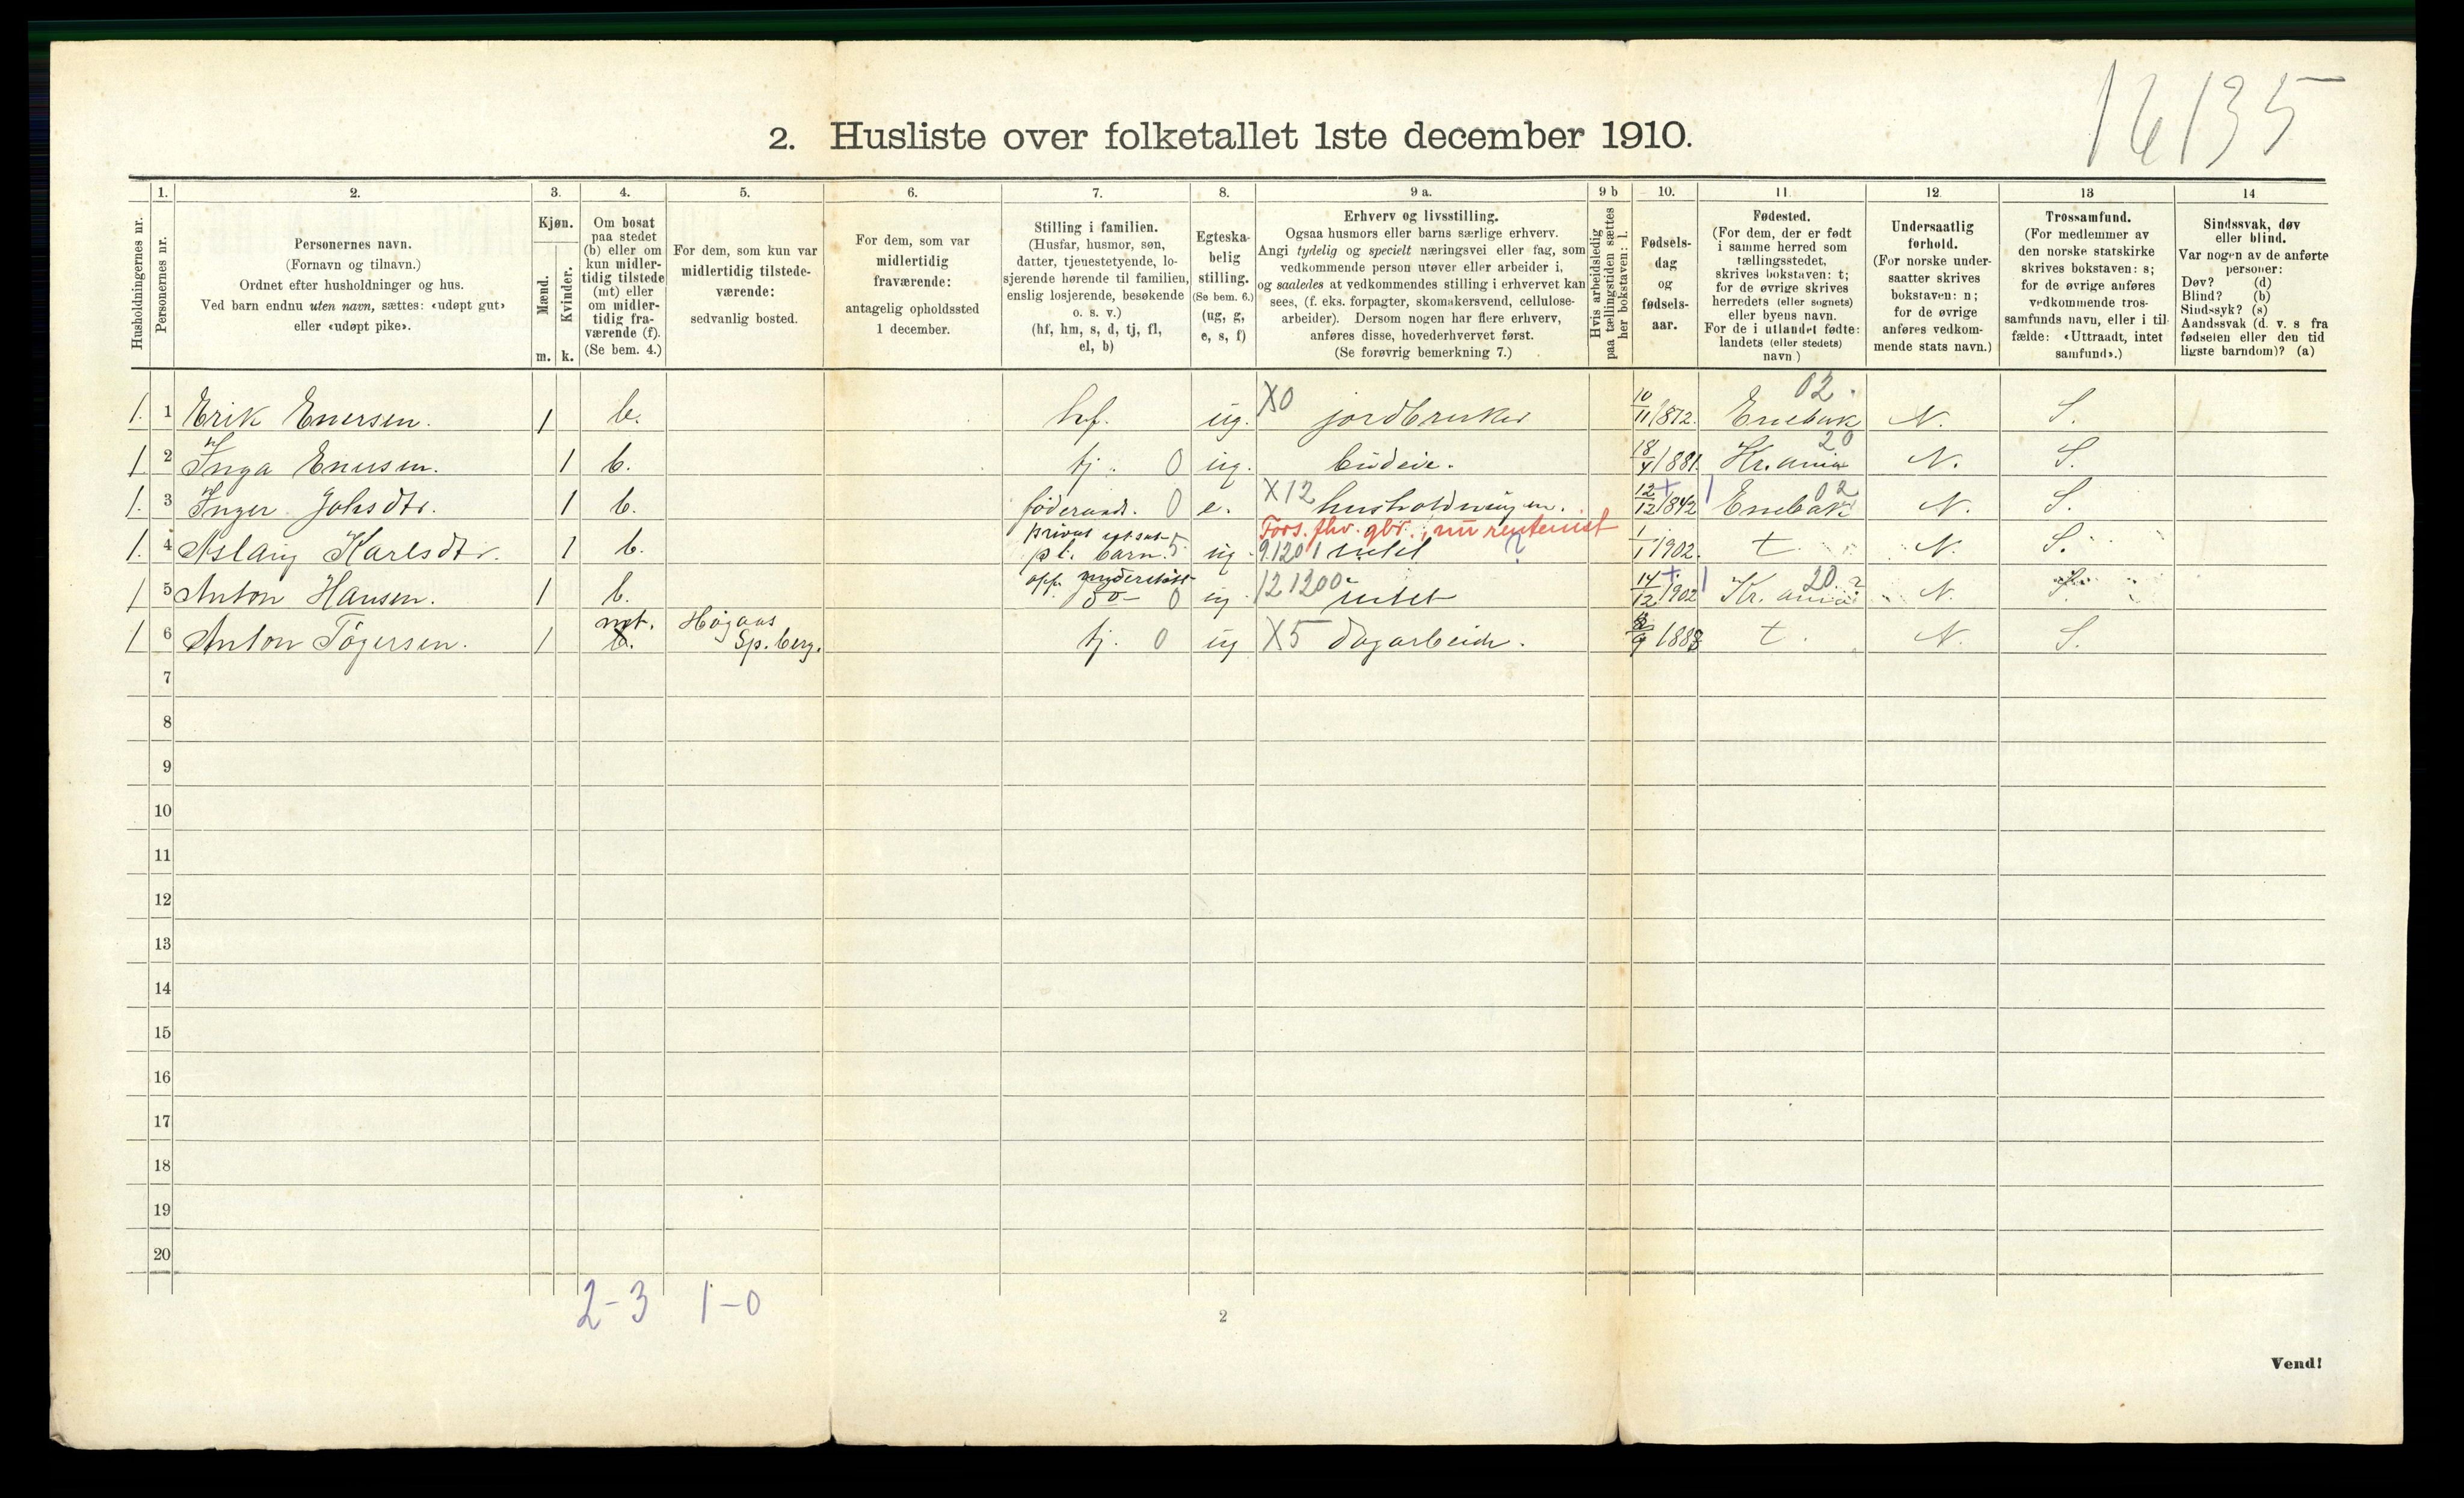 16135
2. Husliste over folketallet 1ste december 1910.
Husholdningernes nr.
1.
Personernes nr.
2.
Personernes navn.
(Fornavn og tilnavn.)
Ordnet efter husholdninger og hus.
Ved barn endnu uten navn, sættes: «udøpt gut»
eller «udøpt pike».
3.
Kjøn.
Mænd.
Kvinder.
m. k.
4.
Om bosat
paa stedet
(b) eller om
kun midler-
tidig tilstede
(mt) eller
om midler-
tidig fra-
værende (f).
(Se bem. 4.)
5.
For dem, som kun var
midlertidig tilstede-
værende:
sedvanlig bosted.
6.
For dem, som var
midlertidig
fraværende:
antagelig opholdssted
1 december.
7.
Stilling i familien.
(Husfar, husmor, søn,
datter, tjenestetyende, lo-
sjerende hørende til familien,
enslig losjerende, besøkende
o. s. v.)
(hf, hm, s, d, tj, fl,
el, b)
8.
Egteska-
belig
stilling.
(Se bem. 6.)
(ug, g,
e, s, f)
9 a.
Erhverv og livsstilling.
Ogsaa husmors eller barns særlige erhverv.
Angi tydelig og specielt næringsvei eller fag, som
vedkommende person utøver eller arbeider i,
og saaledes at vedkommendes stilling i erhvervet kan
sees, (f. eks. forpagter, skomakersvend, cellulose-
arbeider). Dersom nogen har flere erhverv,
anføres disse, hovederhvervet først.
(Se forøvrig bemerkning 7.)
9 b
Hvis arbeidsledig
paa tællingstiden sættes
her bokstaven: l.
10.
Fødsels-
dag
og
fødsels-
aar.
11
Fødested.
(For dem, der er født
i samme herred som
tællingsstedet,
skrives bokstaven: t;
for de øvrige skrives
herredets (eller sognets)
eller byens navn.
For de i utlandet fødte:
landets (eller stedets)
navn)
12
Undersaatlig
forhold.
(For norske under-
saatter skrives
bokstaven: n;
for de øvrige
anføres vedkom-
mende stats navn.)
13
Trossamfund.
(For medlemmer av
den norske statskirke
skrives bokstaven: s;
for de øvrige anføres
vedkommende tros-
samfunds navn, eller i til-
fælde: «Uttraadt, intet
samfund».)
14
Sindssvak, døv
eller blind.
Var nogen av de anførte
personer:
Døv? (d)
Blind? (b)
Sindssyk? (s)
Aandssvak (d. v. s fra
fødselen eller den tid
ligste barndom)? (a)
1. 1 Erik Enersen. 1 b. hf. ug. X0 jordbruker 10/11 1872. Enebak 02 N. S.
1 2 Inga Enersen. 1 b. tj. 0 ug. budeie. 18/4 1881. Kr.ania 20 N. S.
1. 3 Inger Johsdtr. 1 b. føderaad. 0 e. X12 husholdningen. 12/12 1842 Enebak 02 N. S.
Fors. fhv. gbr.; nu rentenist
1. 4 Aslaug Karlsdtr. 1 b. privat p t. barn. 5 ug 9.1201 intet 1/1 1902. t N. S.
1 5 Anton Hansen. 1 b. do 0 ug 12 1200 intet 14/12 1902 Kr. ania 20 N. S.
1 6 Anton Tøgersen. 1 mt. b. Høgaas Sp.berg. tj. 0 ug X5 dagarbeide. 9 1888 t. N. S.
7
8
9
10
11
12
13
14
15
16
17
18
19
20
2-3 1-0
2
Vend!